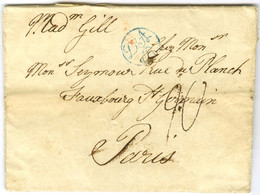 Mad^m Gill
Chez Mon^sr
Mon^sr Seymour Rue de Planch
Fauxbourg S^t Germain
Paris